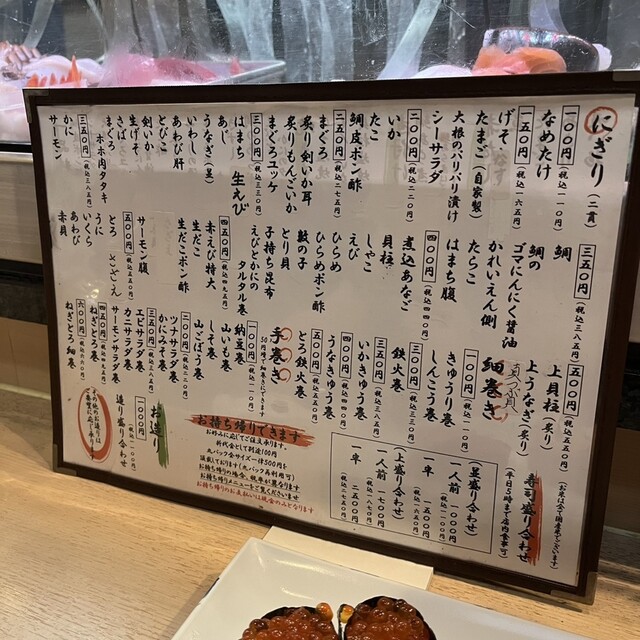 にぎり（二貫）
一〇〇円（税込一一〇円）
なめたけ
一五〇円（税込一六五円）
げそ
たまご（自家製）
大根のパリパリ漬け
シーサラダ
二〇〇円（税込二二〇円）
いか
たこ
鯛皮ポン酢
二五〇円（税込二七五円）
まぐろ
炙り剣いか耳
炙りもんごいか
まぐろユッケ
三〇〇円（税込三三〇円）
はまち
生えび
あじ
うなぎ（蒸）
いわし
あわび肝
とびこ
剣いか
生げそ
さば
まぐろ
ホホ肉タタキ
三五〇円（税込三八五円）
かに
サーモン
三五〇円（税込三八五円）
鯛
鯛の
ゴマにんにく醤油
かれいえん側
たらこ
はまち腹
四〇〇円（税込四四〇円）
煮込あなご
貝柱
しゃこ
えび
ひらめ
ひらめポン酢
鼓の子
とり貝
子持ち昆布
えびとかにの
タルタル巻
四五〇円（税込四九五円）
赤えび特大
生だこ
生だこポン酢
サーモン腹
五〇〇円（税込五五〇円）
とろ
うに
いくら
あわび
赤貝
五〇〇円（税込五五〇円）
上貝柱（炙り）
上うなぎ（炙り）
細巻き
一〇〇円（税込一一〇円）
きゅうり巻
しんこう巻
三五〇円（税込三八五円）
鉄火巻
いかきゅう巻
四〇〇円（税込四四〇円）
うなきゅう巻
五〇〇円（税込五五〇円）
とろ鉄火巻
手巻き
50円増で細巻きにできます
一〇〇円（税込一一〇円）
納豆巻
山いも巻
しそ巻
山ごぼう巻
二〇〇円（税込二二〇円）
ツナサラダ巻
かにみそ巻
三五〇円（税込三八五円）
エビサラダ巻
カニサラダ巻
サーモンサラダ巻
四五〇円（税込四九五円）
ねぎとろ巻
六〇〇円（税込六六〇円）
ねぎとろ細巻
（お米は全て国産米でございます）
寿司盛り合わせ
（平日5時まで店内食事可）
【並盛り合わせ】
一人前 一七〇〇円
（税込一八七〇円）
一伞 一五〇〇円
（税込一六五〇円）
【上盛り合わせ】
一人前
一伞 二五〇〇円
（税込二七五〇円）
お持ち帰りできます
お好みに応じてご注文承ります。
折代金として別途100円
丸パック全サイズ一律500円を
頂戴しております（丸パック再利用可）
お持ち帰りの場合、税率が異なります
お持ち帰りメニューをご覧くださいませ
お持ち帰りのお支払いは現金のみとなります
お造り
造り盛り合わせ